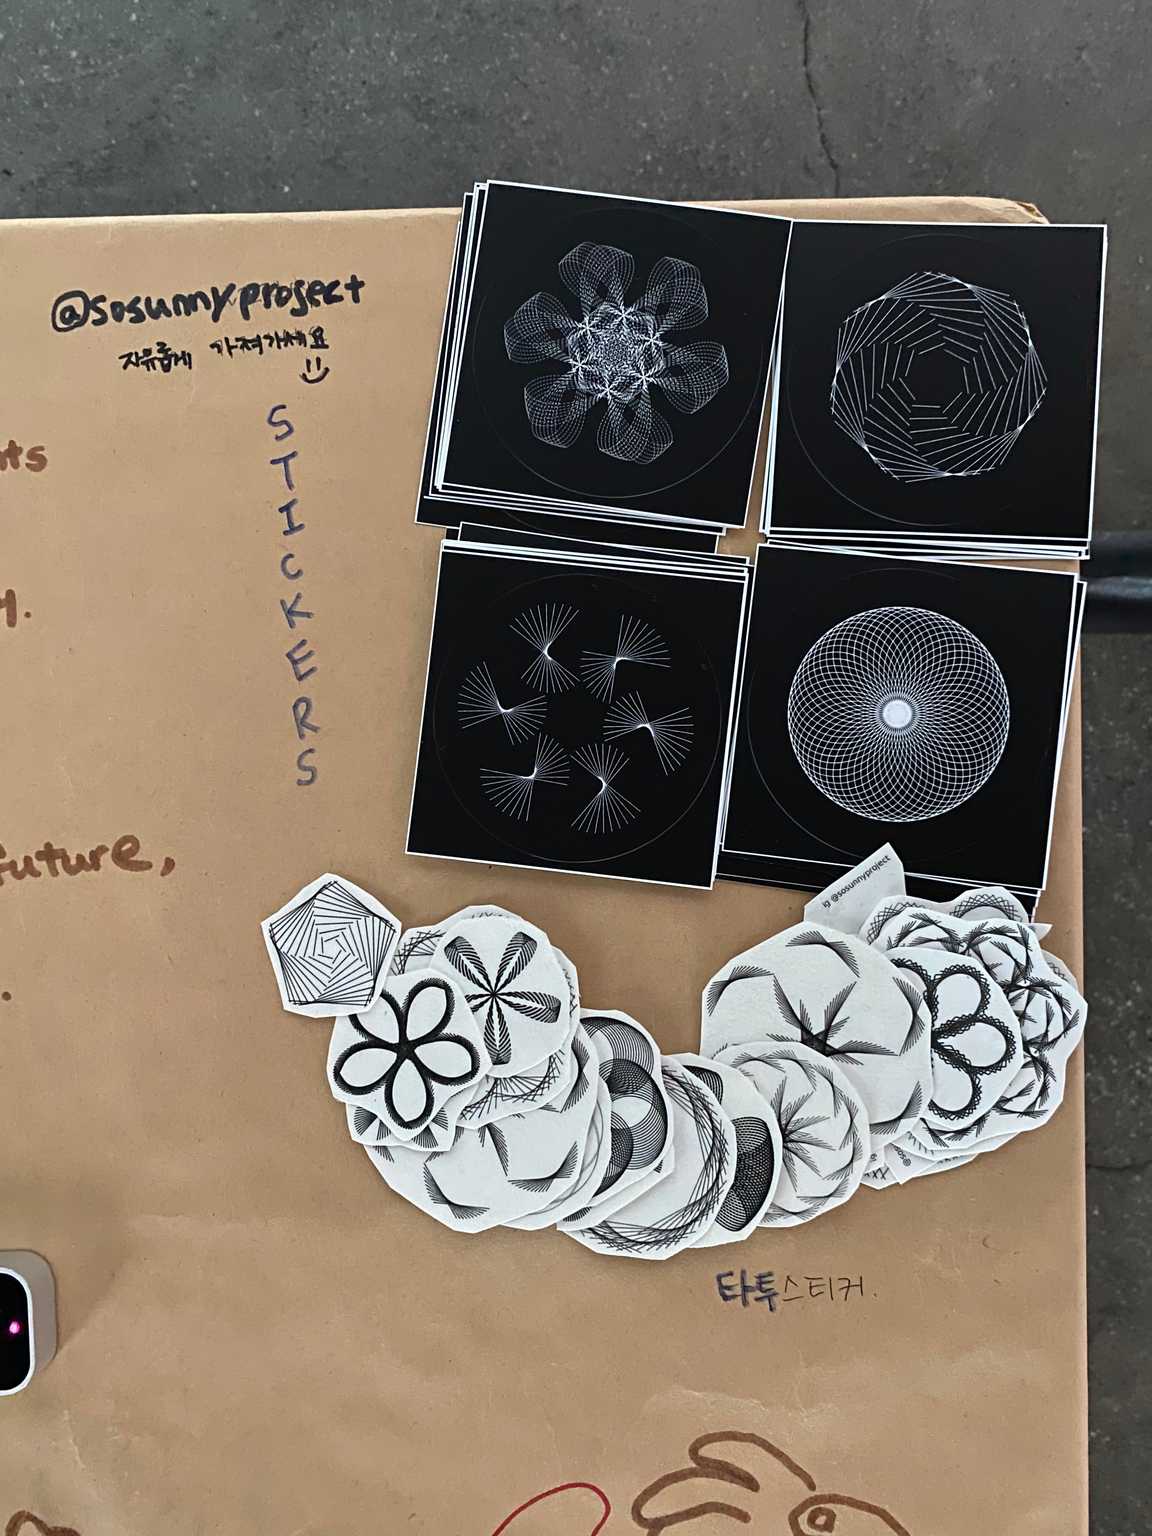 @sosunnyproject
자유롭게 가져가세요
STICKERS
nts
y.
future,
.
ig @sosunnyproject
타투스티커.